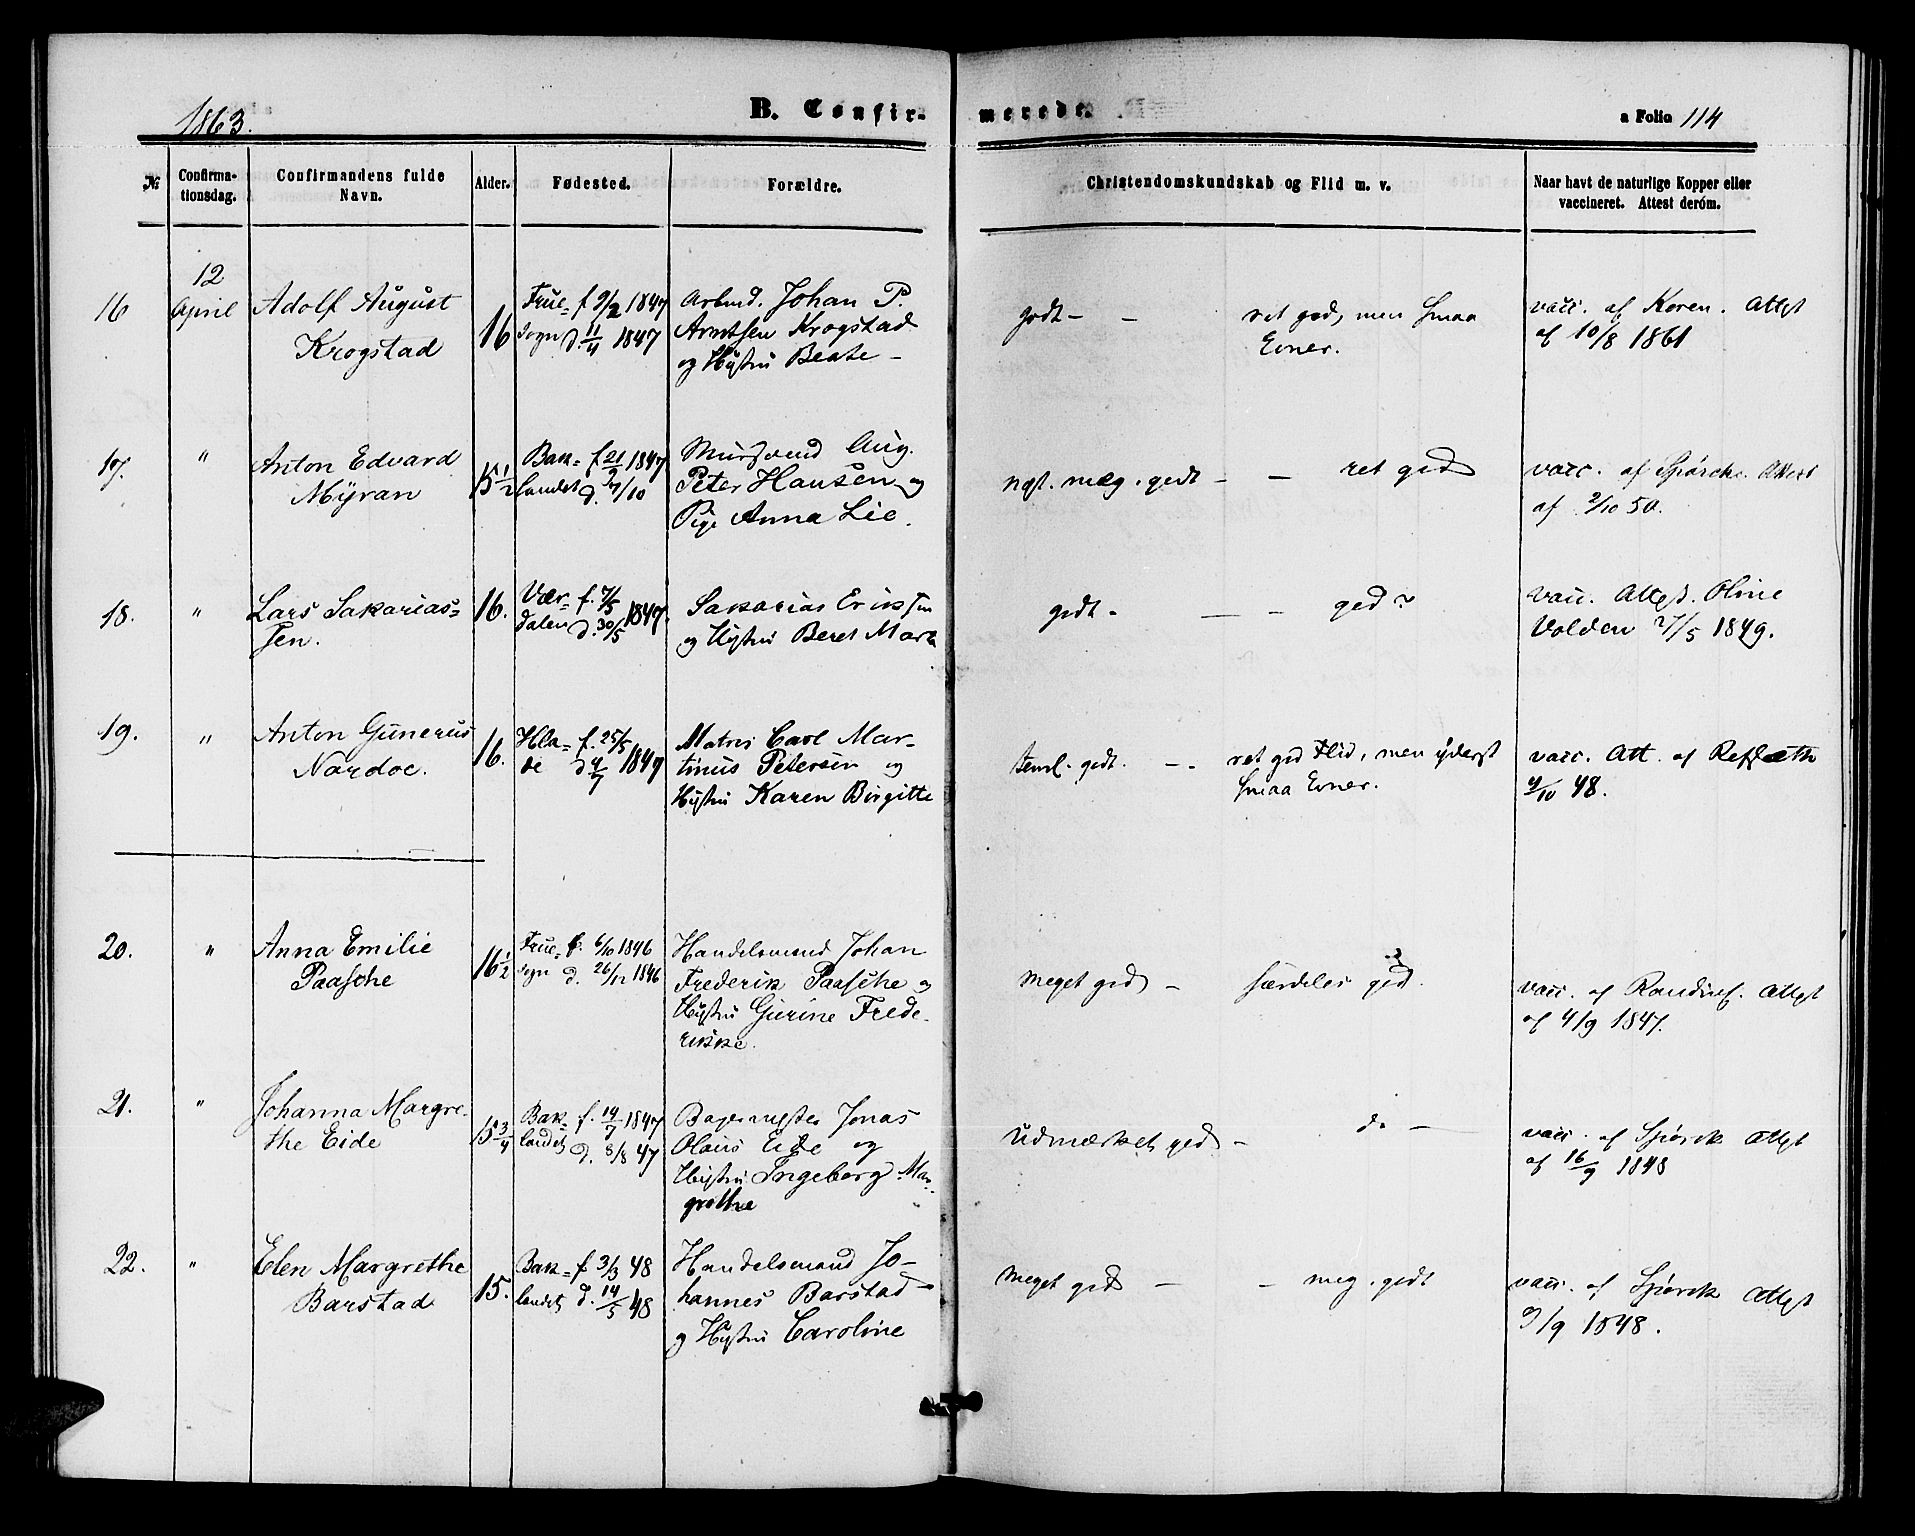 1863.
B. Confirmerede.
a Folio 114
№
Confirma-
tionsdag.
Confirmandens fulde
Navn.
Alder.
Fødested.
Forældre.
Christendomskundskab og Flid m. v.
Naar havt de naturlige Kopper eller
vaccineret. Attest derom.
16
12
April
Adolf August
Krogstad
16
Frue= f 9/2 1847
sogn d. 11/4 1847
Arbmd. Johan P.
Arntsen Krogstad
og Hustru Beate -
godt - -
ret god, men smaa
Evner.
vacc. af Koren. Attest
af 10/8 1861
17.
"
Anton Edvard
Myran
15 1/2
Bak= f 21/2 1847
landet d. 7/10
Mursvend Aug.
Peter Hansen og
Pige Anna Lie.
ngt. meg. godt - - ret god
vacc. af Spørck. Attest
af 2/10 50.
18.
"
Lars Sakarias=
sen.
16.
Vær= f. 7/5 1847.
dalen d. 30/5
Sakarias Eriksen
og Hustru Beret Marta
godt - - - god
vacc. Attest. Oline
Volden 27/5 1849.
19.
"
Anton Gunerus
Nardoe.
16.
Hla= f. 25/5 1847
de d 4/7
Matros Carl Mar-
tinus Petersen og
Hustru Karen Birgitte
teml. godt. - - ret god Flid, men yderst
smaa Evner.
vacc. Att. af
9/10 48.
20.
"
Anna Emilie
Paasche
16 1/2
Frue= f. 6/10 1846
sogn d. 26/12 1846
Handelsmand Johan
Frederik Paasche og
Hustru Gurine Frede-
rikke.
meget god - særdeles god.
vacc. af Attest
af 4/9 1847.
21.
"
Johanna Margre-
the Eide
15 3/4
Bak- f. 14/7 1847
landet d. 8/8 47
Bagermester Jonas
Olaus Eide og
Hustru Ingeborg Mar-
grethe
udmærket god - do -
vacc. af Spørck Attest
af 16/9 1848
22.
"
Elen Margrethe
Barstad
15.
Bak= f 3/3 48
landet d. 14/5 48
Handelsmand Jo-
hannes Barstad
og Hustru Caroline
meget god - - meg. godt
vacc. af Spørck Attest
9/9 1848.